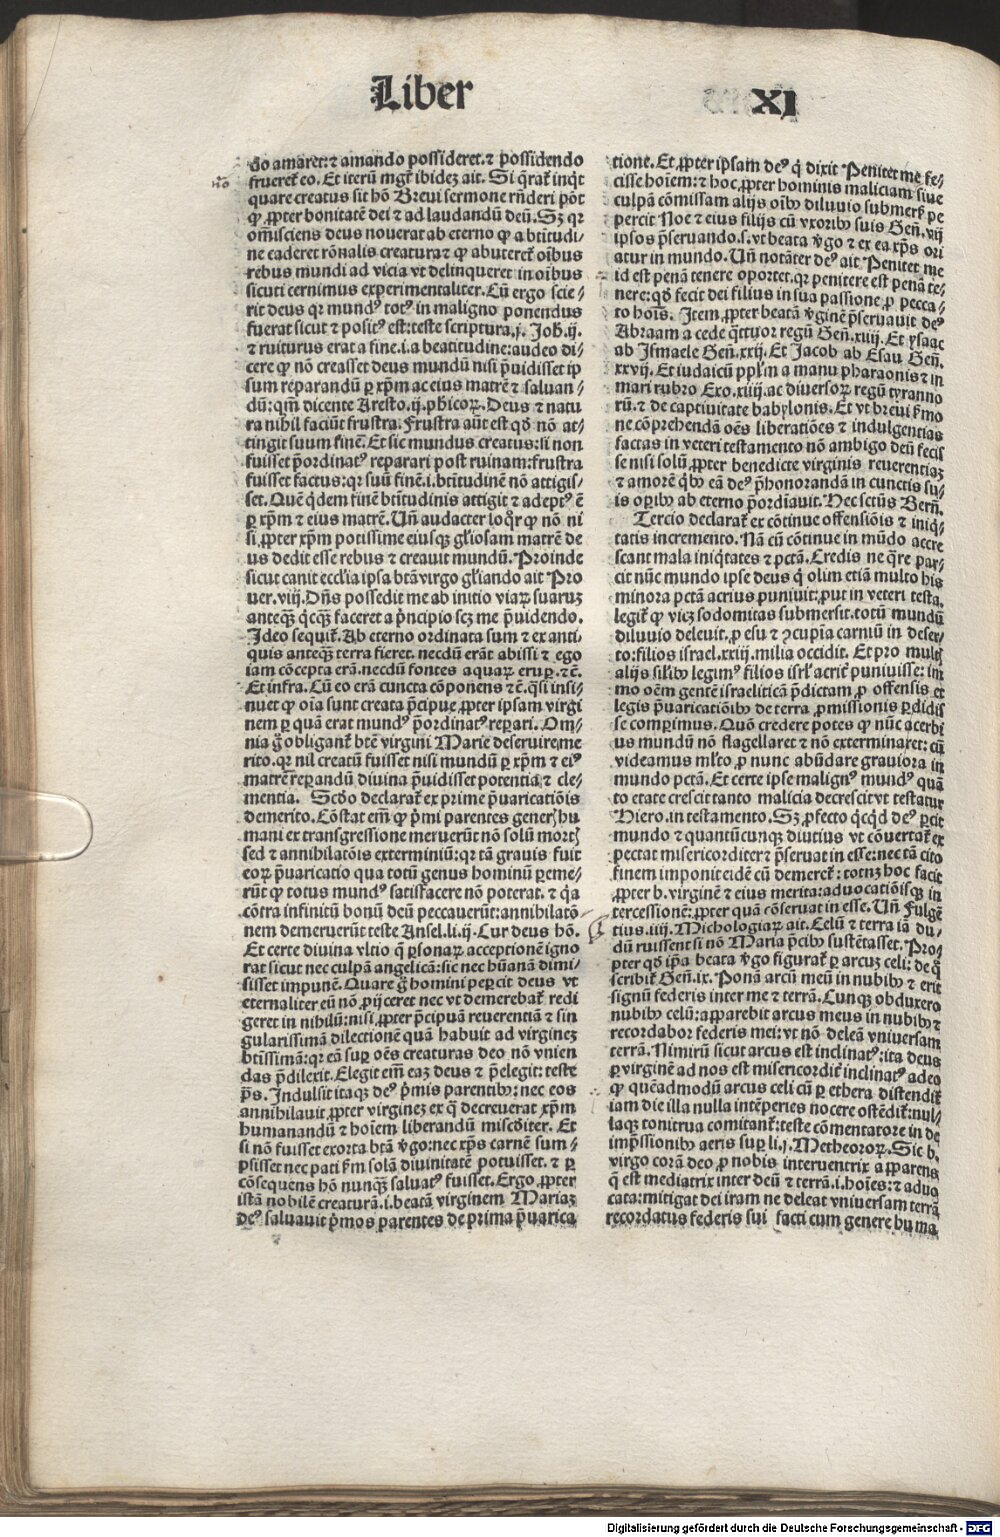 Liber
XI
do amaret: ⁊ amando possideret. ⁊ possidendo
frueret᷑ eo. Et iterū mgr̄ ibidez ait. Si q̄rat᷑ inqͥt
quare creatus sit hō Breui sermone rn̄deri pōt
ꝙ ꝓpter bonitatē dei ⁊ ad laudandū deū. Sꝫ qꝛ
om̄isciens deus nouerat ab eterno ꝙ a btītudi⸗
ne caderet rōnalis creatura ⁊ ꝙ abuteret᷑ oībus
rebus mundi ad vicia vt delinqueret in oībus
sicuti cernimus experimentaliter. Cū ergo scie⸗
rit deus qꝛ mundꝰ totꝰ in maligno ponendus
fuerat sicut ⁊ positꝰ est: teste scriptura. j. Joh̄. ij.
⁊ ruiturus erat a fine. i. a beatitudine: audeo di⸗
cere ꝙ nō creasset deus mundū nisi p̄uidisset ip
sum reparandū per xp̄m ac eius matrē ⁊ saluan⸗
dū: qm̄ dicente Aresto. ij. ph̄icoꝝ. Deus ⁊ natu
ra nihil faciūt frustra. Frustra aūt est qd̄ nō at⸗
tingit suum finē. Et sic mundus creatus: si non
fuisset p̄ordinatꝰ reparari post ruinam: frustra
fuisset factus: qꝛ suū finē. i. btītudinē nō attigis⸗
set. Quē qͥdem finē btītudinis attigit ⁊ adeptꝰ ē
ꝑ xp̄m ⁊ eius matrē. Vn̄ audacter loqͦr ꝙ nō ni
si ꝓpter xp̄m potissime eiusqꝫ gl̄iosam matrē de
us dedit esse rebus ⁊ creauit mundū. Proinde
sicut canit eccl̄ia ipsa btā virgo gl̄iando ait Pro
uer. viij. Dn̄s possedit me ab initio viaꝝ suaruz
anteqꝫ qͥcqꝫ faceret a pͥncipio scꝫ me p̄uidendo.
Ideo sequit᷑. Ab eterno ordinata sum ⁊ ex anti
quis anteqꝫ terra fieret. necdū erāt abissi ⁊ ego
iam cōcepta erā. necdū fontes aquaꝝ eruꝑ. ⁊c̄.
Et infra. Cū eo erā cuncta cōponens ⁊c̄. qͣsi insi⸗
nuet ꝙ oīa sunt creata p̄cipue ꝓpter ipsam virgi
nem ꝑ quā erat mundꝰ p̄ordinatꝰ reꝑari. Om⸗
nia gͦ obligant᷑ btē virgini Marie deseruire me
rito. qꝛ nil creatū fuisset nisi mundū ꝑ xp̄m ⁊ eiꝰ
matrē reꝑandū diuina p̄uidisset potentia ⁊ cle⸗
mentia. Scd̄o declarat᷑ ex prime p̄uaricatiōis
demerito. Cōstat em̄ ꝙ pͥmi parentes generis hu
mani ex transgressione meruerūt nō solū mortē
sed ⁊ annihilatōis exterminiū: qꝛ tā grauis fuit
eoꝝ p̄uaricatio qua totū genus hominū ꝑeme⸗
rūt ꝙ totus mundꝰ satisfacere nō poterat. ⁊ qͥa
cōtra infinitū bonū deū peccauerūt: annihilatō⸗
nem demeruerūt teste Ansel. li. ij. Cur deus hō.
Et certe diuina vltio q̄ ꝑsonaꝝ acceptionē igno
rat sicut nec culpā angelicā: sic nec hūanā dimi⸗
sisset impunē. Quare gͦ homini peꝑcit deus vt
eternaliter eū nō ꝓijceret nec vt demerebat᷑ redi
geret in nihilū: nisi ꝓpter p̄cipuā reuerentiā ⁊ sin
gularissimā dilectionē quā habuit ad virginez
btissimā: qꝛ eā suꝑ oēs creaturas deo nō vnien
das p̄dilexit. Elegit em̄ eaz deus ⁊ p̄elegit: teste
p̄s. Indulsit itaqꝫ deꝰ pͥmis parentibꝰ: nec eos
annihilauit ꝓpter virginez ex q̄ decreuerat xp̄m
humanandū ⁊ hoīem liberandū miscd̄iter. Et
si nō fuisset exorta btā v̄go: nec xp̄s carnē sum⸗
psisset nec pati km solā diuinitatē potuisset. ⁊ ꝑ
cōsequens hō nunqꝫ saluatꝰ fuisset. Ergo ꝓpter
istā nobilē creaturā. i. beatā virginem Mariaz
deꝰ saluauit pͥmos parentes de prima p̄uarica
tione. Et ꝓpter ipsam deꝰ qͥ dixit Penitet me fe⸗
cisse hoīem: ⁊ hoc ꝓpter hominis maliciam siue
culpā cōmissam alijs oībꝰ diluuio submersis pe
percit Noe ⁊ eius filijs cū vxoribꝰ suis Gen̄. vij
ipsos p̄seruando. s. vt beata v̄go ⁊ ex ea xp̄s ori
atur in mundo. Vn̄ notāter deꝰ ait Penitet me
id est penā tenere oportet. qꝛ penitere est penā te⸗
nere: qd̄ fecit dei filius in sua passione ꝓ pecca⸗
to hoīs. Item ꝓpter beatā v̄ginē p̄seruauit deꝰ
Abraam a cede qͣttuor regū Gen̄. xiiij. Et ysaac
ab Ismaele Gen̄. xxij. Et Jacob ab Esau Gen̄.
xxvij. Et iudaicū ppl̄m a manu pharaonis ⁊ in
mari rubro Exo. xiiij. ac diuersoꝝ regū tyranno
rū. ⁊ de captiuitate babylonis. Et vt breui s̄mo
ne cōprehendā oēs liberatiōes ⁊ indulgentias
factas in veteri testamento nō ambigo deū fecis
se nisi solū ꝓpter benedicte virginis reuerentiaz
⁊ amorē qͥbꝰ eā deꝰ p̄honorandā in cunctis su⸗
is oꝑibꝰ ab eterno p̄ordīauit. Hec sctūs Bern̄.
Tercio declarat᷑ ex cōtinue offensiōis ⁊ iniqͥ⸗
tatis incremento. Nā cū cōtinue in mūdo accre
scant mala iniqͥtates ⁊ pctā. Credis ne qͣre par⸗
cit nūc mundo ipse deus qͥ olim etiā multo his
minora pctā acrius puniuit: ꝓut in veteri testa.
legit᷑ ꝙ vicꝫ sodomitas submersit. totū mundū
diluuio deleuit. ꝓ esu ⁊ ꝯcupīa carniū in deser⸗
to: filios israel. xxiij. milia occidit. Et pro multis
alijs sil̄ibꝰ legimꝰ filios isrl̄ acrit᷑ puniuisse: im
mo oēm gentē israeliticā p̄dictam ꝓ offensis et
legis p̄uaricatiōibꝰ de terra ꝓmissionis ꝑdidis
se comꝑimus. Quō credere potes ꝙ nūc acerbi
us mundū nō flagellaret ⁊ nō exterminaret: cū
videamus ml̄to ꝓ nunc abūdare grauiora in
mundo pctā. Et certe ipse malignꝰ mundꝰ quā
to etate crescit tanto malicia decrescit vt testatur
Hiero. in testamento. Sꝫ ꝓfecto qͥcqͥd deꝰ ꝑcit
mundo ⁊ quantūcunqꝫ diutius vt cōuertat᷑ ex
pectat misericorditer ⁊ p̄seruat in esse: nec tā cito
finem imponit eidē cū demeret᷑: totuz hoc facit
ꝓpter b. virginē ⁊ eius merita: aduocatiōisqꝫ in
tercessionē: ꝓpter quā cōseruat in esse. Vn̄ Fulgē
tius. iiij. Michologiaꝝ ait. Celū ⁊ terra iā du⸗
dū ruissent si nō Maria p̄cibꝰ sustētasset. Pro⸗
pter qd̄ ip̄a beata v̄go figurat᷑ ꝑ arcuz celi: de qͦ
scribit᷑ Gen̄. ix. Ponā arcū meū in nubibꝰ ⁊ erit
signū federis inter me ⁊ terrā. Cunqꝫ obduxero
nubibꝰ celū: apparebit arcus meus in nubibꝰ ⁊
recordabor federis mei: vt nō deleā vniuersam
terrā. Nimirū sicut arcus est inclinatꝰ: ita deus
ꝑ virginē ad nos est misericordit᷑ inclinatꝰ adeo
ꝙ quēadmodū arcus celi cū ꝑ ethera distendit᷑
iam die illa nulla intēperies nocere ostēdit᷑: nul⸗
laqꝫ tonitrua comitant᷑: teste cōmentatore in de
imp̄ssionibꝰ aeris suꝑ li. j. Metheoroꝝ. Sic b.
virgo corā deo ꝓ nobis interuentrix apparens
q̄ est mediatrix inter deū ⁊ terrā. i. hoīes: ⁊ aduo
cata: mitigat dei iram ne deleat vniuersam terrā
recordatus federis sui facti cum genere huma